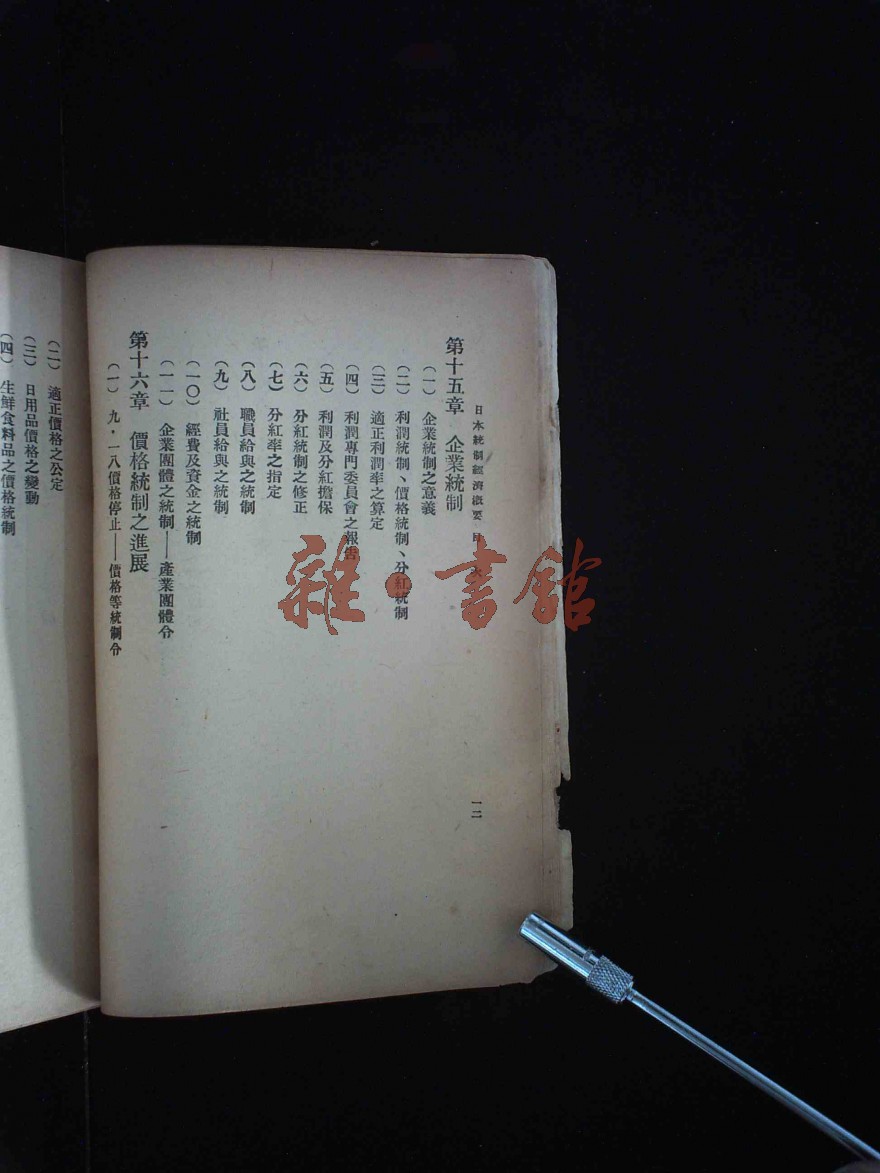 日本統制經濟概要 目次
一二
第十五章 企業統制
(一) 企業統制之意義
(二) 利潤統制、價格統制、分紅統制
(三) 適正利潤率之算定
(四) 利潤專門委員會之報告
(五) 利潤及分紅擔保
(六) 分紅統制之修正
(七) 分紅率之指定
(八) 職員給與之統制
(九) 社員給與之統制
(一〇) 經費及資金之統制
(一一) 企業團體之統制——產業團體令
第十六章 價格統制之進展
(一) 九·一八價格停止——價格等統制令
(二) 適正價格之公定
(三) 日用品價格之變動
(四) 生鮮食料品之價格統制
雜·書館